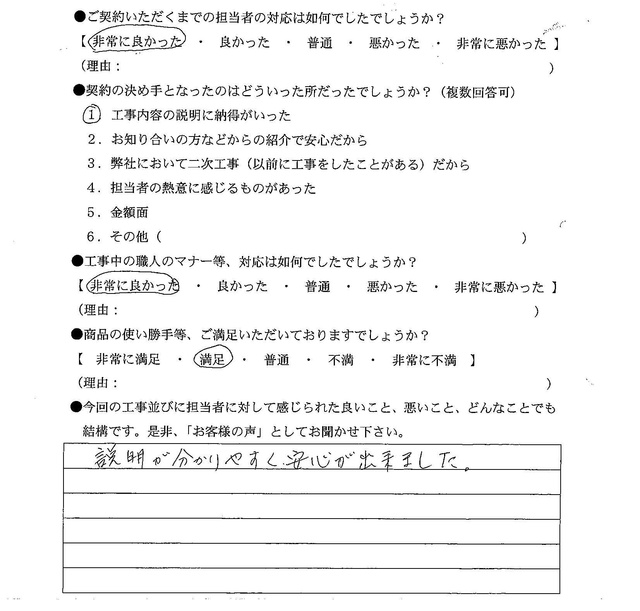 ●ご契約いただくまでの担当者の対応は如何でしたでしょうか？
【 非常に良かった ・ 良かった ・ 普通 ・ 悪かった ・ 非常に悪かった 】
（理由： ）
●契約の決め手となったのはどういった所だったでしょうか？（複数回答可）
1 工事内容の説明に納得がいった
2．お知り合いの方などからの紹介で安心だから
3．弊社において二次工事（以前に工事をしたことがある）だから
4．担当者の熱意に感じるものがあった
5．金額面
6．その他（ ）
●工事中の職人のマナー等、対応は如何でしたでしょうか？
【 非常に良かった ・ 良かった ・ 普通 ・ 悪かった ・ 非常に悪かった 】
（理由： ）
●商品の使い勝手等、ご満足いただいておりますでしょうか？
【 非常に満足 ・ 満足 ・ 普通 ・ 不満 ・ 非常に不満 】
（理由： ）
●今回の工事並びに担当者に対して感じられた良いこと、悪いこと、どんなことでも
結構です。是非、「お客様の声」としてお聞かせ下さい。
説明が分かりやすく、安心が出来ました。